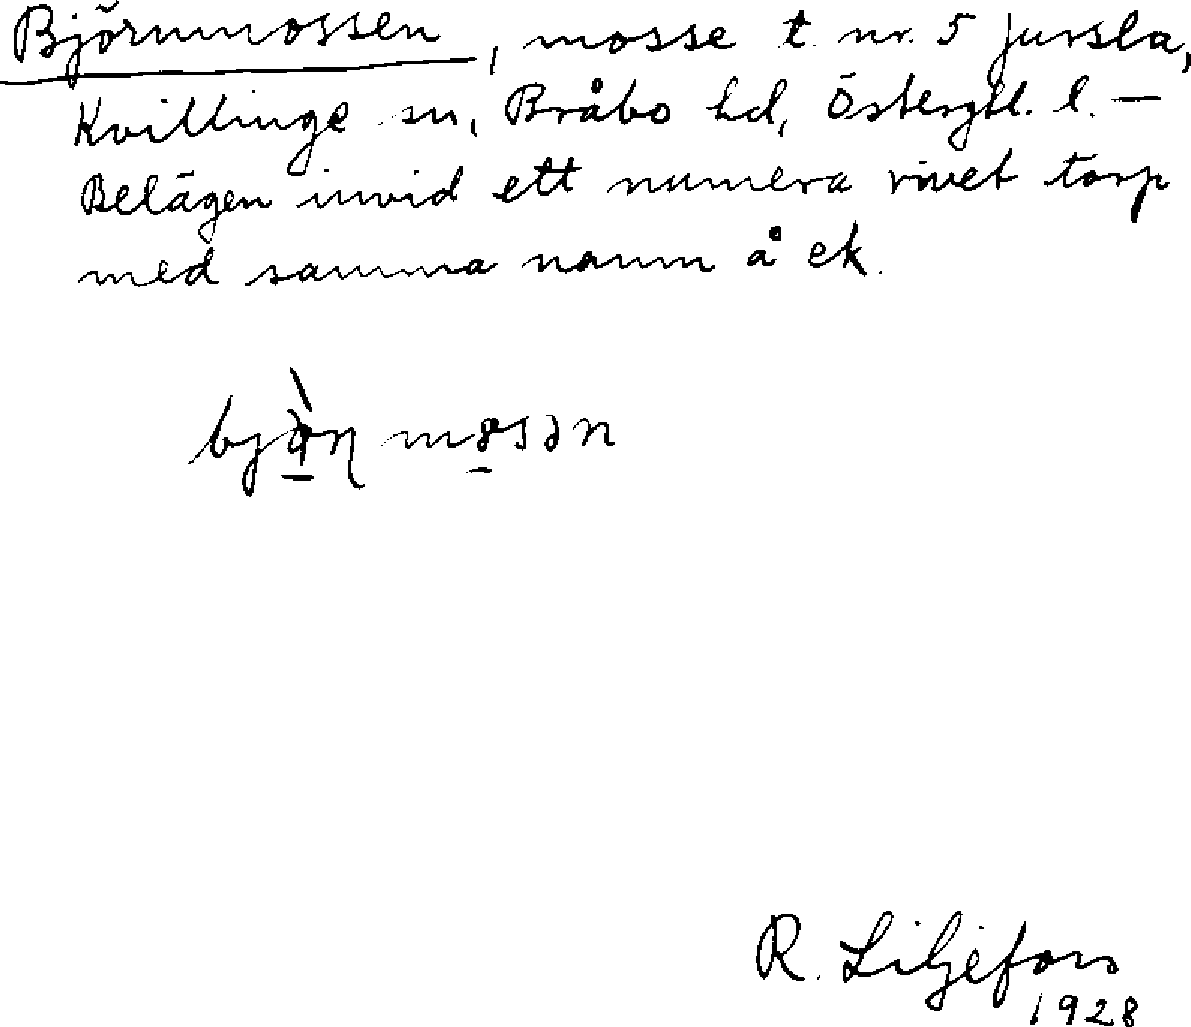 Björnmossen, mosse t. nr. 5 Jursla,
Kvillinge sn, Bråbo hd, Östergtl. l. —
Belägen invid ett numera rivet torp
med samma namn å ek.
R. Liljefors
1928